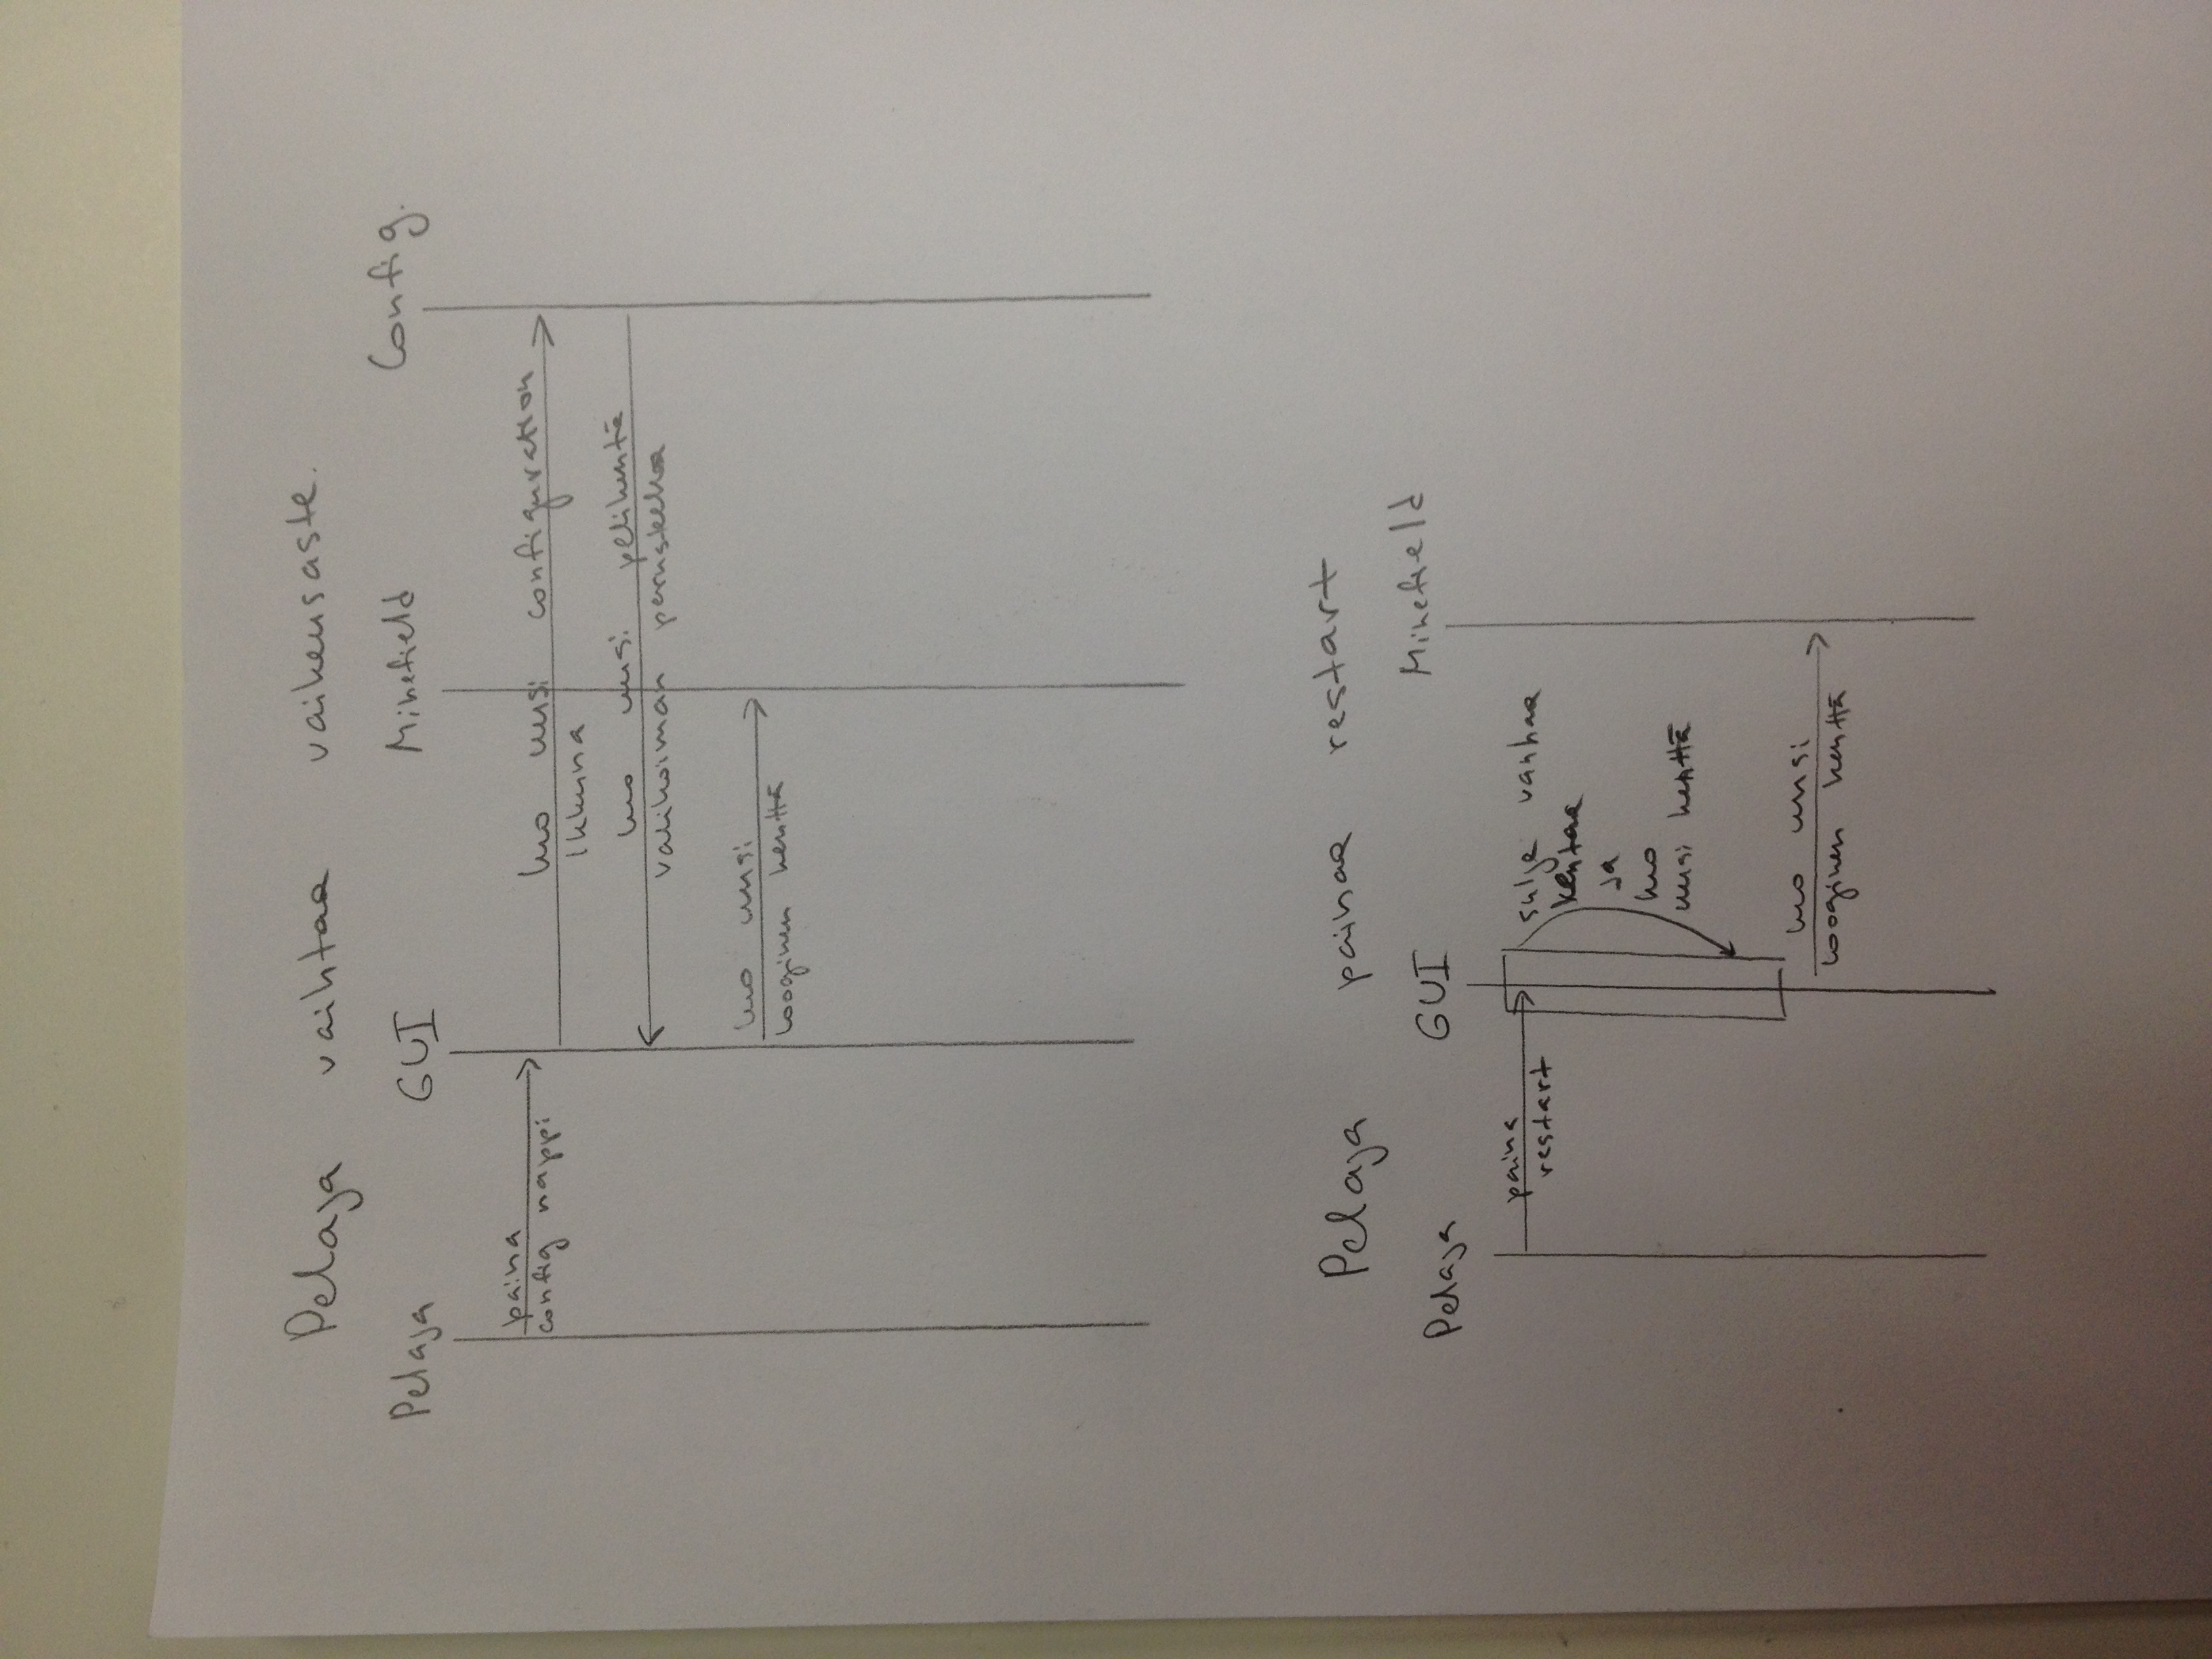 Pelaja vaihtaa vaikeusaste.
Pelaja GUI Minefield Config.
paina
config nappi
luo uusi configuration
ikkuna
luo uusi pelikentä
valikoiman peruskella
luo uusi
looginen kenttä
Pelaja painaa restart
Pelaja GUI Minefield
paina
restart
sulje vanhaa
kentaa
ja
luo
uusi kenttä
luo uusi
looginen kenttä